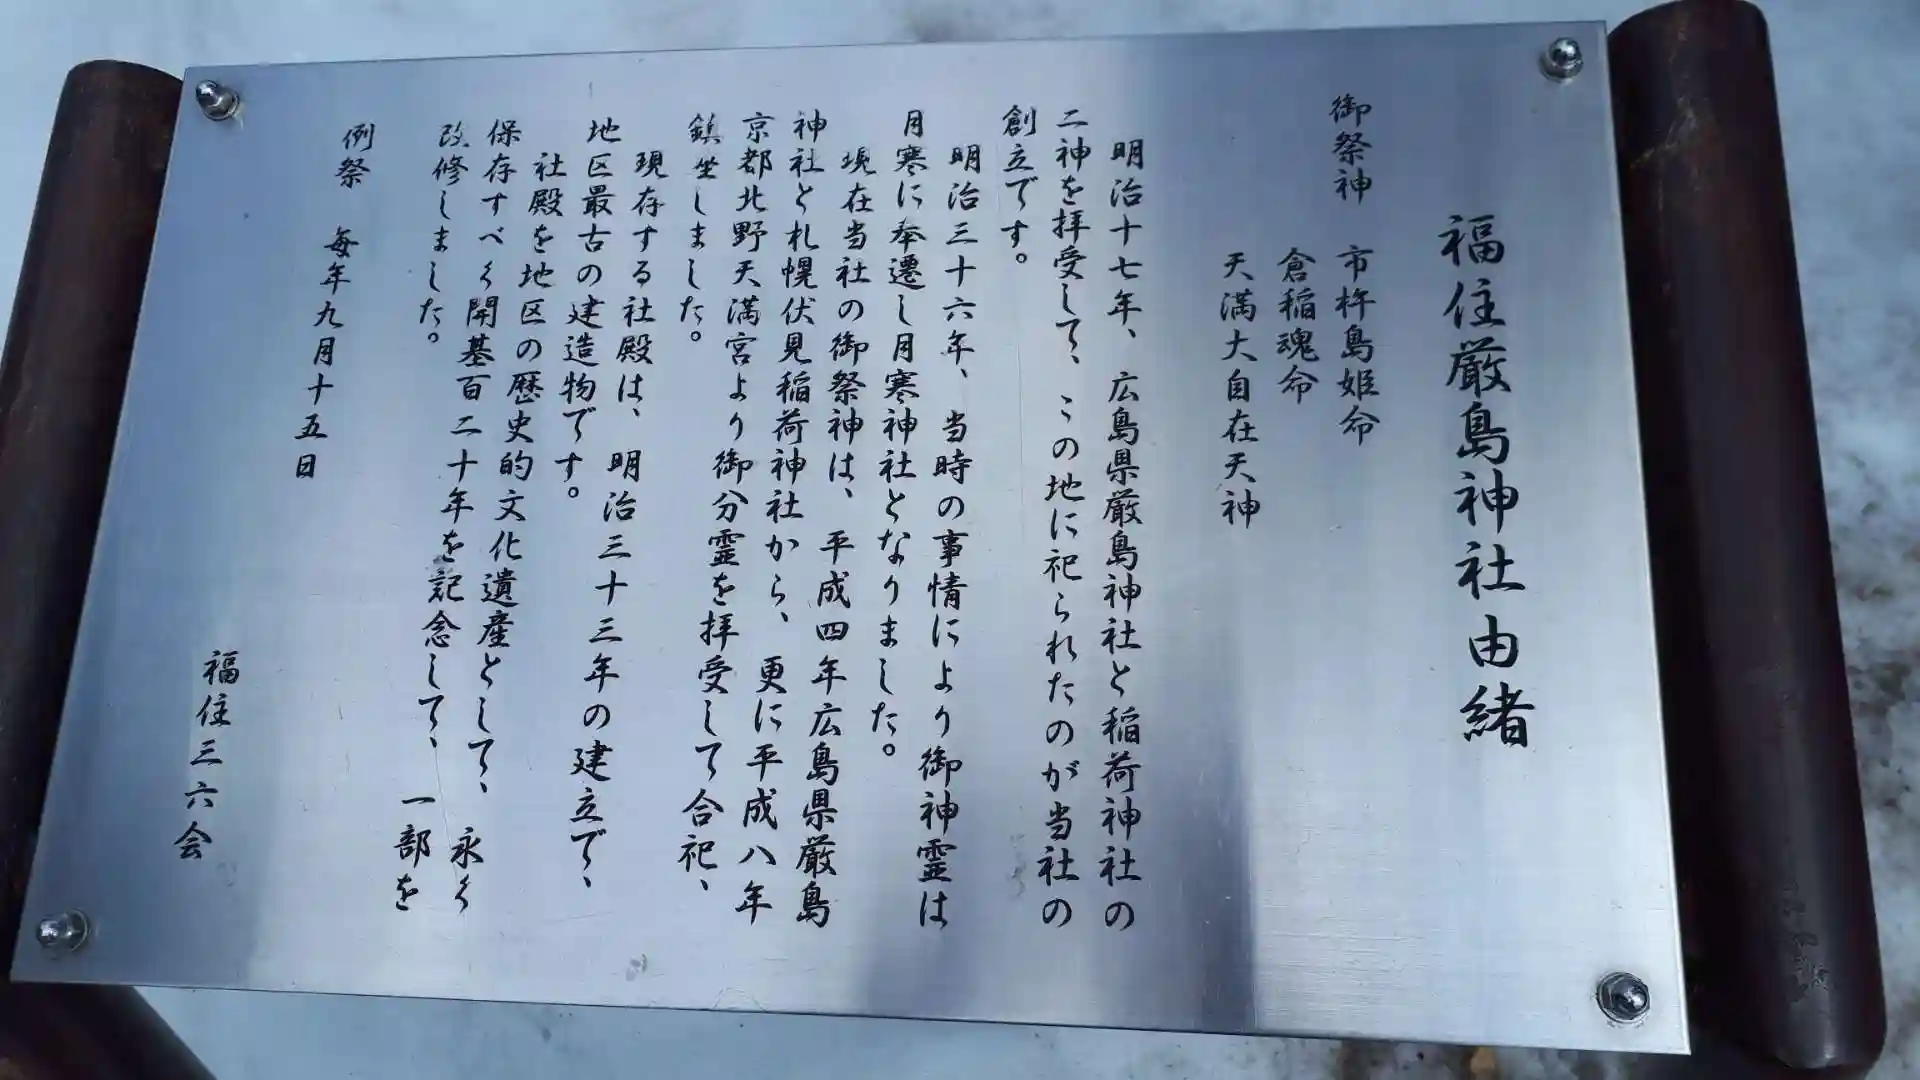 福住厳島神社由緒
御祭神　市杵島姫命
倉稲魂命
天満大自在天神
明治十七年、広島県厳島神社と稲荷神社の
二神を拝受して、この地に祀られたのが当社の
創立です。
明治三十六年、当時の事情により御神霊は
月寒に奉遷し月寒神社となりました。
現在当社の御祭神は、平成四年広島県厳島
神社と札幌伏見稲荷神社から、更に平成八年
京都北野天満宮より御分霊を拝受して合祀、
鎮坐しました。
現存する社殿は、明治三十三年の建立で、
地区最古の建造物です。
社殿を地区の歴史的文化遺産として、永く
保存すべく開基百二十年を記念して、一部を
改修しました。
例祭　毎年九月十五日
福住三六会